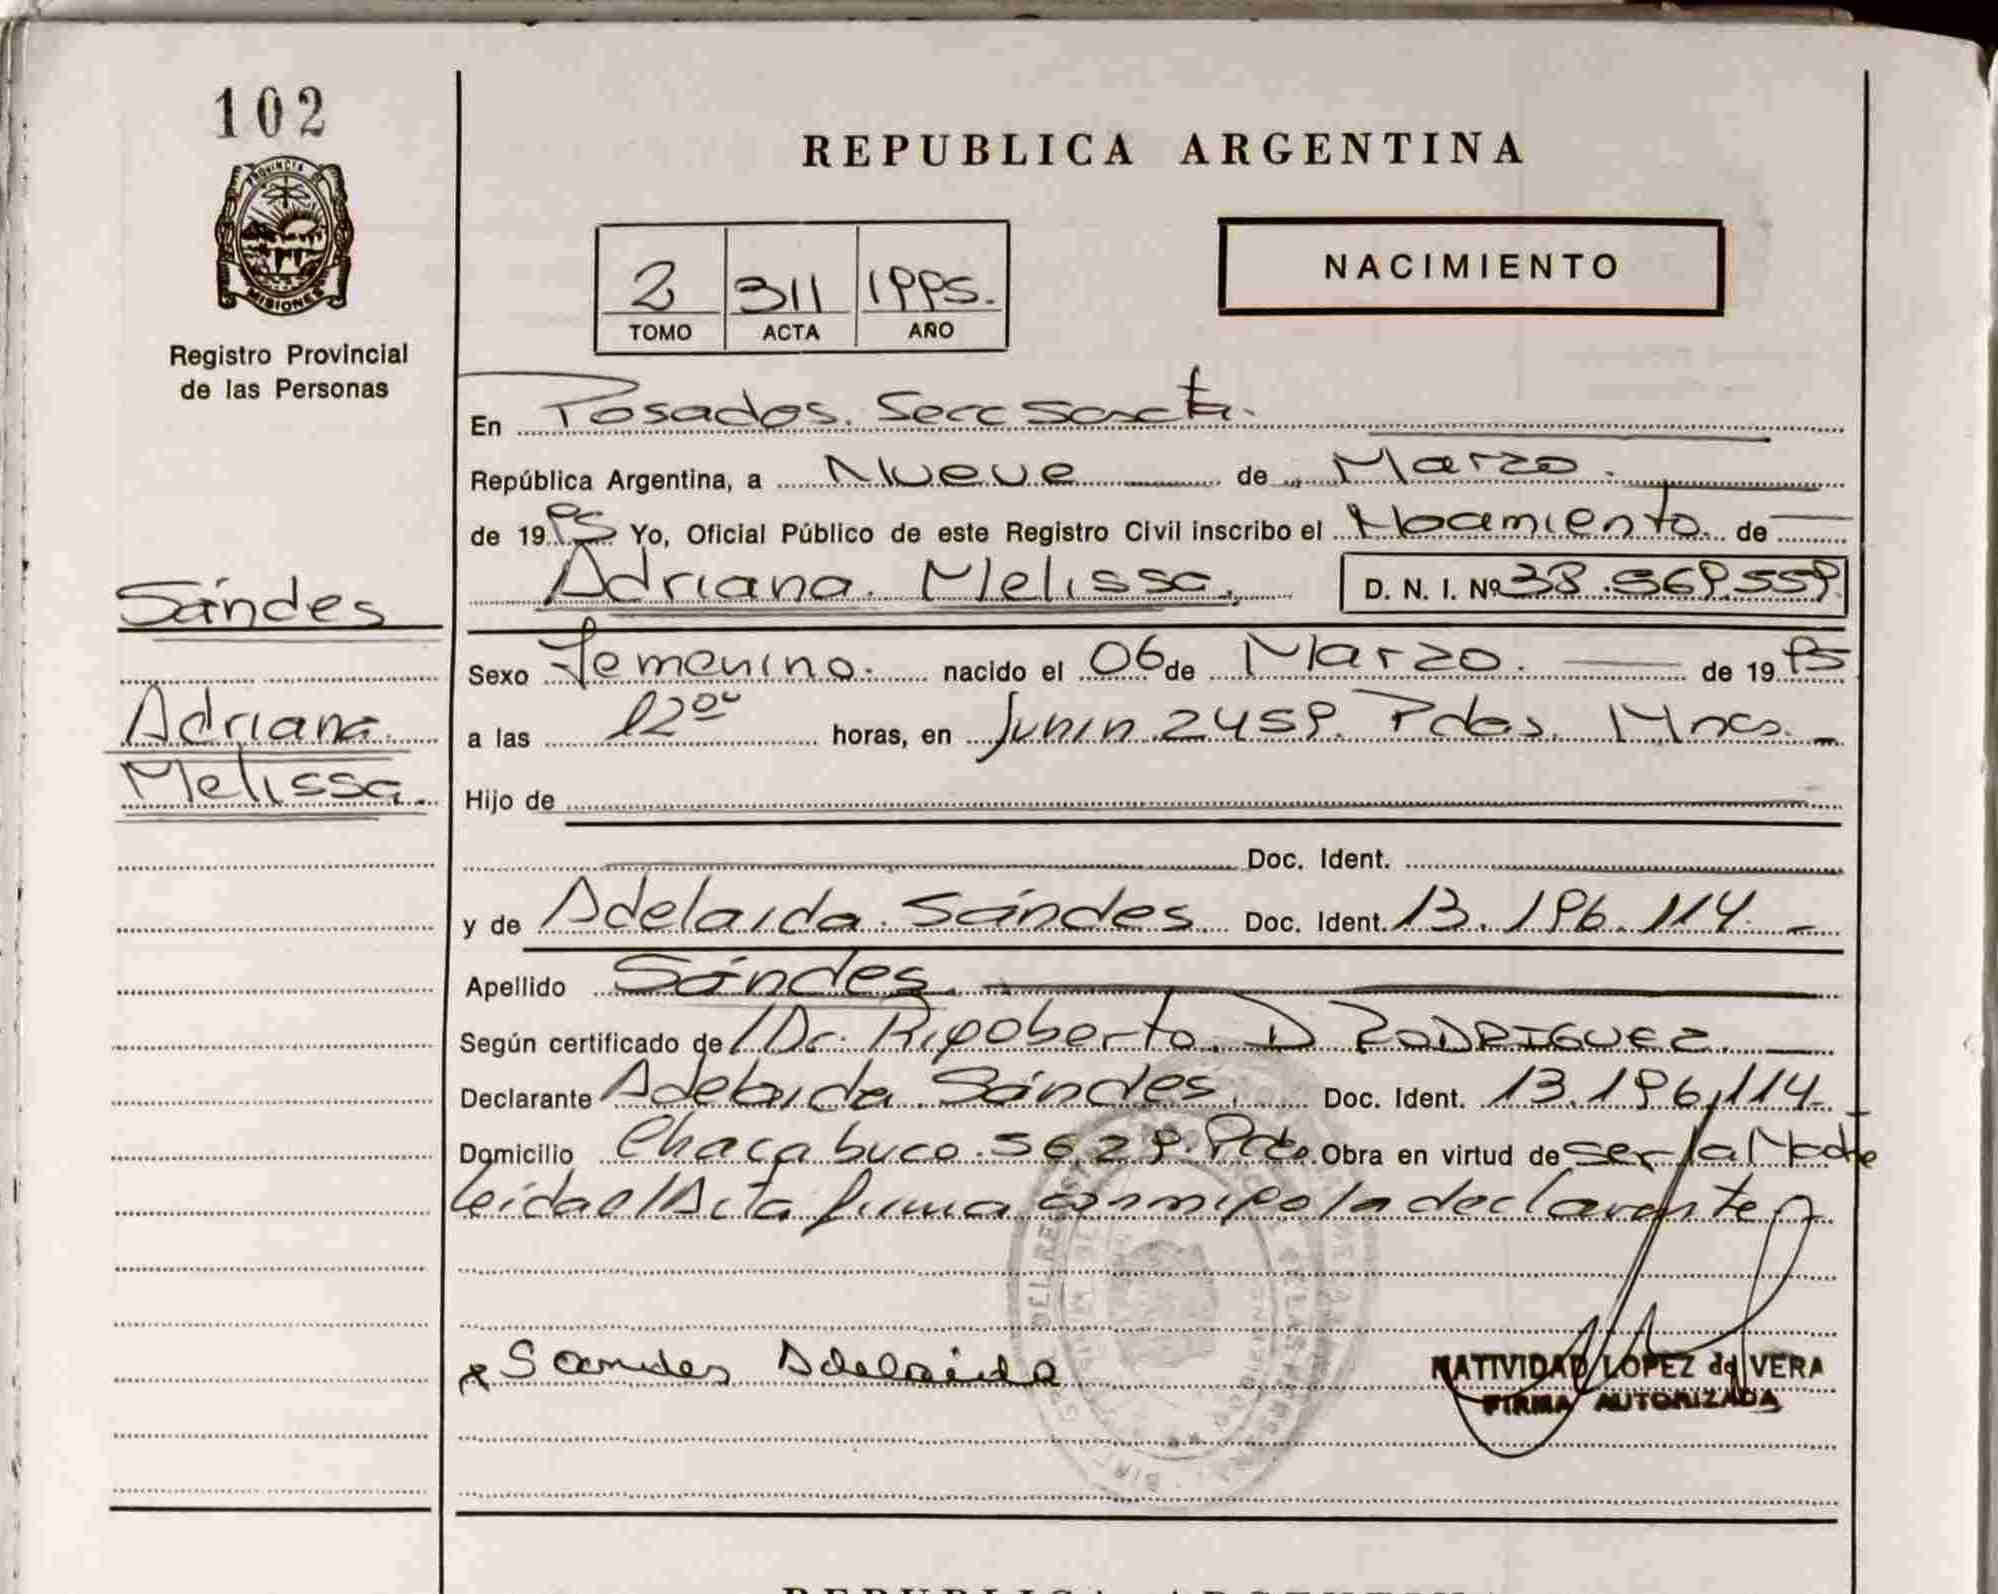 102
PROVINCIA DE
MISIONES
Registro Provincial
de las Personas
Sándes
Adriana
Melissa.
REPUBLICA ARGENTINA
2 311 1995.
TOMO ACTA AÑO
NACIMIENTO
En Posadas. Secc Sexta.
República Argentina, a Nueve de Marzo.
de 1995 Yo, Oficial Público de este Registro Civil inscribo el Nacimiento. de
Adriana. Melissa. D. N. I. Nº 38.569.559
Sexo Femenino. nacido el 06 de Marzo. de 1995
a las 12⁰⁰ horas, en Junin 2459. Pdas. Mnes.
Hijo de
Doc. Ident.
y de Adelaida Sándes Doc. Ident. 13.196.114.
Apellido Sándes.
Según certificado de Dr. Rigoberto. D RODRIGUEZ.
Declarante Adelaida Sándes. Doc. Ident. 13.196.114.
Domicilio Chacabuco. 5629. Pdas. Obra en virtud de ser la Madre
leida el Acta firma conmigo la declarante
Sandes Adelaida
NATIVIDAD LOPEZ de VERA
FIRMA AUTORIZADA
REPUBLICA ARGENTINA